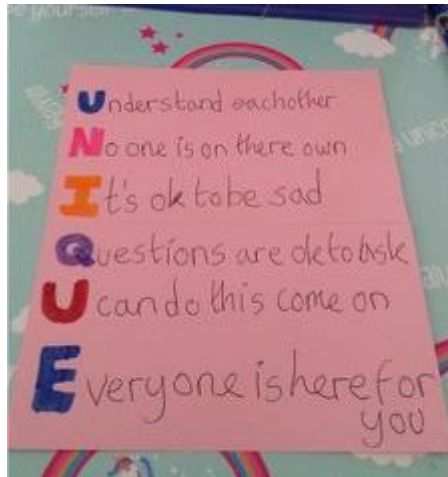 Understand eachother
No one is on there own
It's ok to be sad
Questions are ok to ask
U can do this come on
Everyone is here for
you